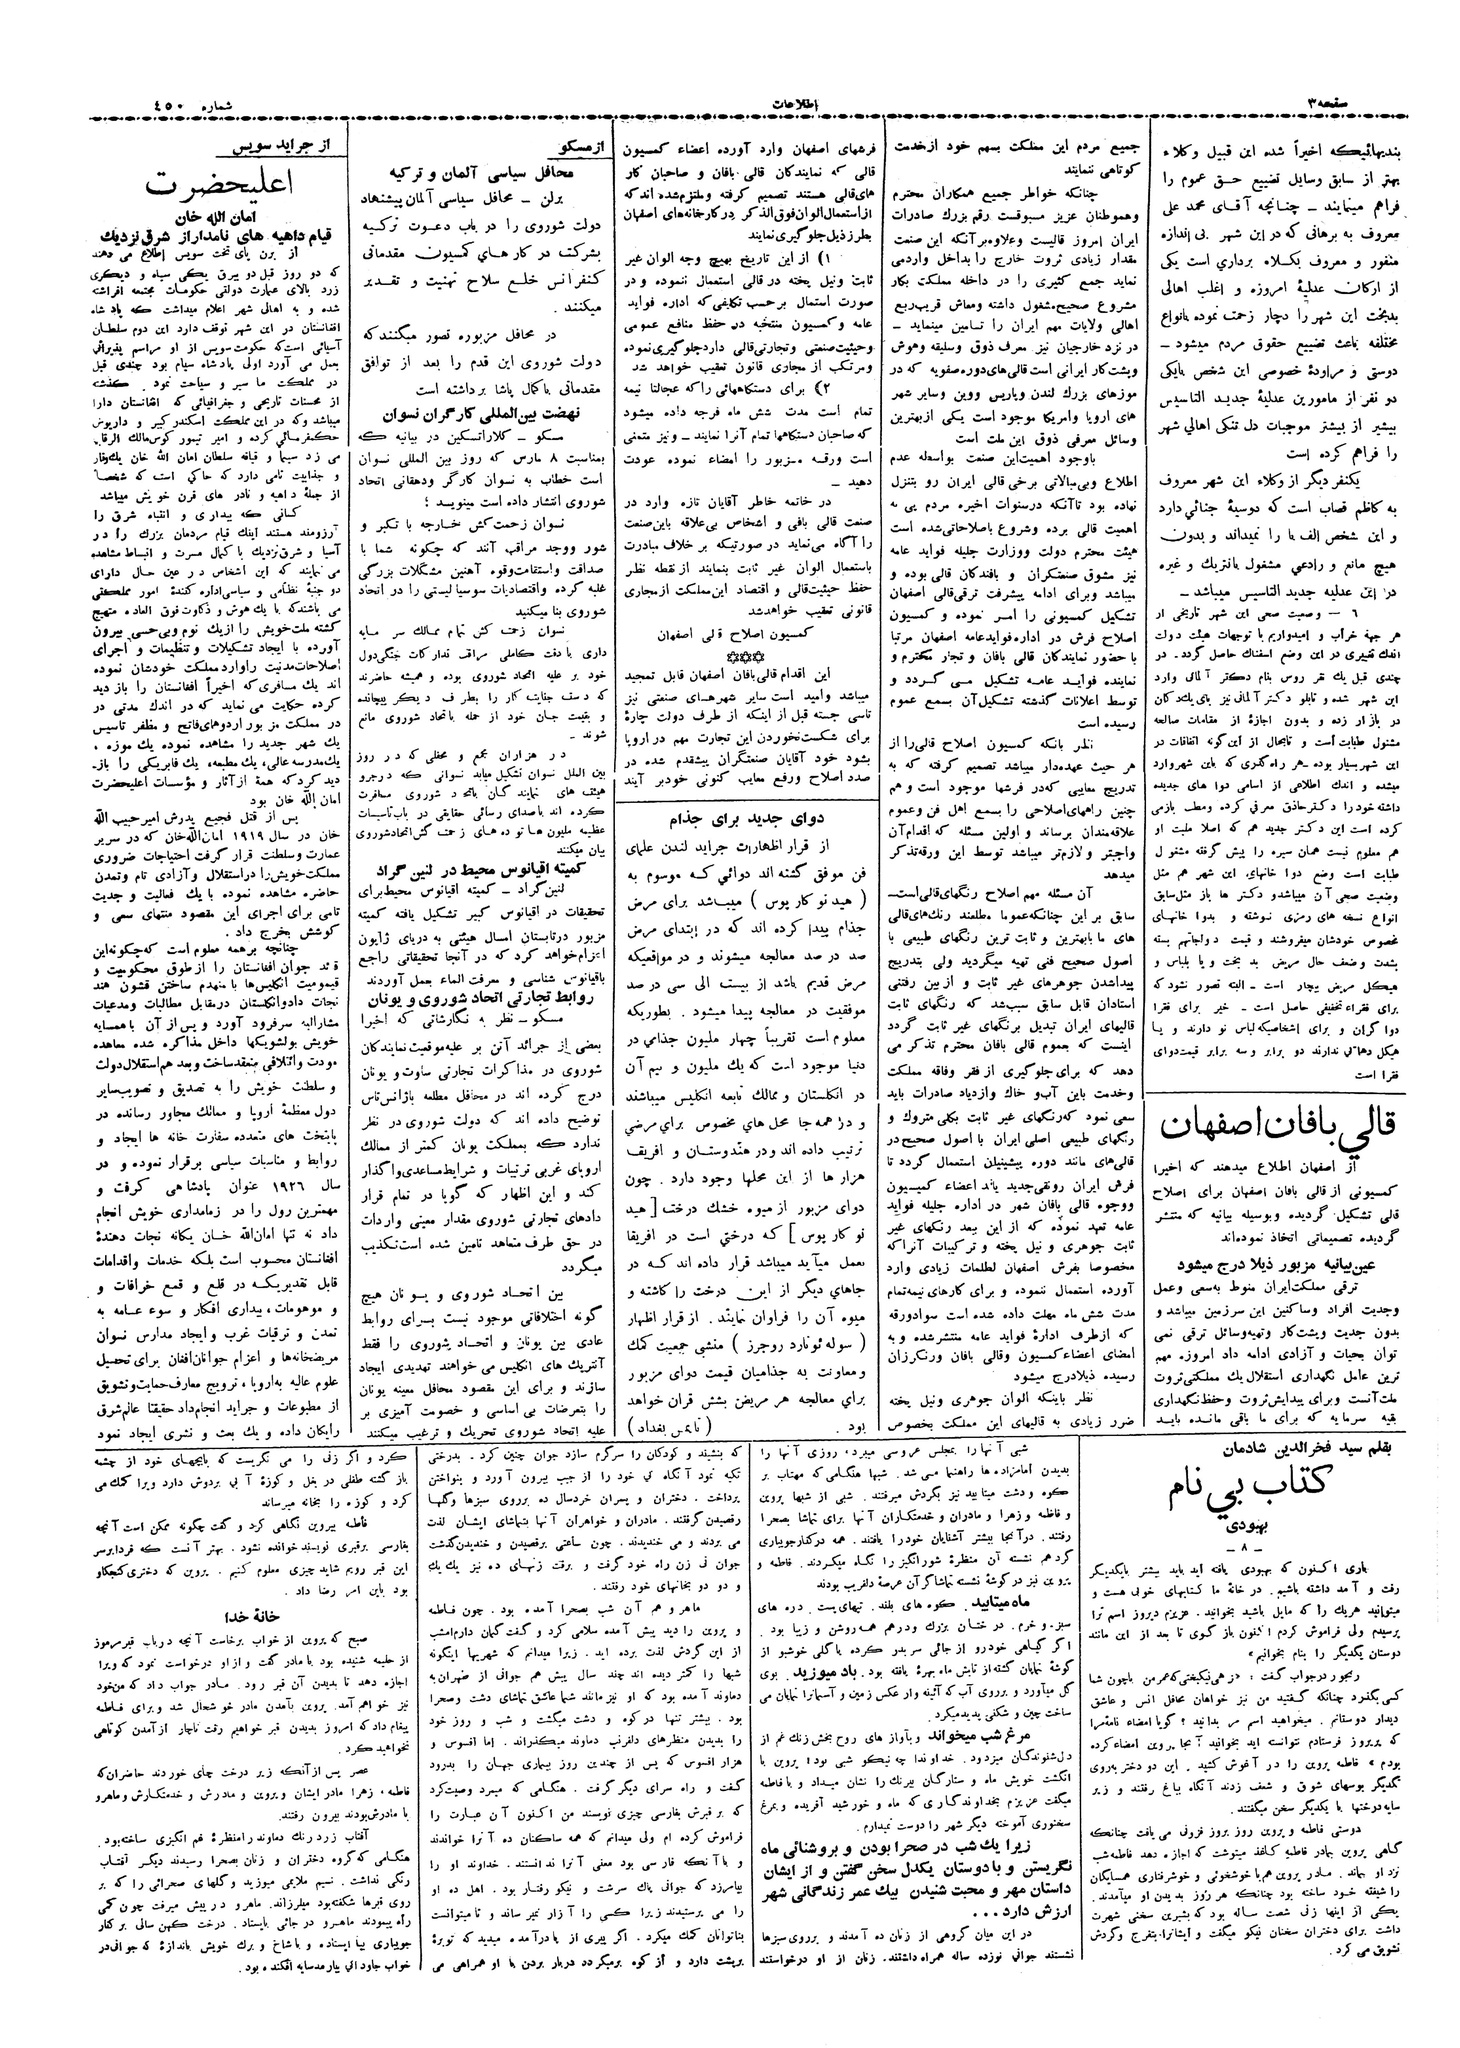 صفحه ۳
اطلاعات
شماره ٤٥٠
بندیهائیکه اخیراً شده این قبیل وکلاء
بهتر از سابق وسایل تضییع حق عموم را
فراهم مینمایند – چنانچه آقای محمد علی
معروف به برهانی که در این شهر بی اندازه
منفور و معروف بکلاه برداری است یکی
از ارکان عدلیهٔ امروزه و اغلب اهالی
بدبخت این شهر را دچار زحمت نموده بانواع
مختلفه باعث تضییع حقوق مردم میشود –
دوستی و مراودهٔ خصوصی این شخص بایکی
دو نفر از مامورین عدلیهٔ جدید التاسیس
بیشیر از بیشتر موجبات دل تنکی اهالی شهر
را فراهم کرده است
یکنفر دیگر از وکلاء این شهر معروف
به کاظم قصاب است که دوسیهٔ جنائی دارد
و این شخص الف با را نمیداند و بدون
هیچ مانع و رادعی مشغول بانتریك و غیره
در این عدلیه جدید التاسیس میباشد –
٦ – وضعیت صحی این شهر تاریخی از
هر جهة خراب و امیدواریم با توجهات هیئت دولت
اندك تغییری در این وضع اسفناك حاصل گردد.
چندی قبل یك نفر روس بنام دکتر آلمانی وارد
این شهر شده و تابلو دکتر آلمانی نیز بای یك دکان
در بازار زده و بدون اجازهٔ از مقامات صالحه
مشغول طبابت است و تابحال از این گونه اتفاقات در
این شهر بسیار بوده – هر راه گذری که باین شهر وارد
میشده و اندك اطلاعی از اسامی دوا های جدیده
داشته خود را دکتر حاذق معرفی کرده و مطب بازمی
کرده است این دکتر جدید هم که اصلا ملیت او
هم معلوم نیست همان سیره را پیش گرفته مشغول
طبابت است وضع دوا خانهای این شهر هم مثل
وضعیت صحی آن میباشد و دکتر ها باز مثل سابق
انواع نسخه های رمزی نوشته و بدوا خانهای
مخصوص خودشان میفروشند و قیمت دواجاتهم بسته
بشدت وضعف حال مریض بد بخت و یا بلباس و
هیکل مریض بیچار است – البته تصور نشود که
برای فقراء تخفیفی حاصل است – خیر برای فقرا
دوا گران و برای اشخاصیکه لباس نو دارند و یا
هیکل دهاتی ندارند دو برابر و سه برابر قیمت دوای
فقرا است
قالي بافان اصفهان
از اصفهان اطلاع میدهند که اخیرا
کمسیونی از قالی بافان اصفهان برای اصلاح
قالی تشکیل گردیده وبوسیله بیانیه که منتشر
گردیده تصمیماتی اتخاذ نموده‌اند
عین بیانیه مزبور ذیلا درج میشود
ترقی مملکت ایران منوط به سعی وعمل
وجدیت افراد وساکنین این سرزمین میباشد و
بدون جدیت وپشت‌کار وتهیه وسائل ترقی نمی
توان بحیات و آزادی ادامه داد امروزه مهم
ترین عامل نگهداری استقلال یك مملکتی ثروت
ملت آنست وبرای پیدایش ثروت وحفظ نگهداری
بقیه سرمایه که برای ما باقی مانده باید
جمیع مردم این مملکت بسهم خود از خدمت
کوتاهی ننمایند
چنانکه خواطر جمیع همکاران محترم
وهموطنان عزیز مسبوقست رقم بزرك صادرات
ایران امروز قالیست وعلاوه بر آنکه این صنعت
مقدار زیادی ثروت خارج را بداخل واردمی
نماید جمع کثیری را در داخله مملکت بکار
مشروع صحیح مشغول داشته ومعاش قریب ربع
اهالی ولایات مهم ایران را تامین مینماید –
در نزد خارجیان نیز معرف ذوق وسلیقه وهوش
وپشت‌کار ایرانی است قالی‌های دوره صفویه که در
موزهای بزرك لندن وپاریس ووین وسایر شهر
های اروپا وامریکا موجود است یکی از بهترین
وسائل معرفی ذوق این ملت است
باوجود اهمیت این صنعت بواسطه عدم
اطلاع وبی‌مبالاتی برخی قالی ایران رو بتنزل
نهاده بود تاآنکه درسنوات اخیره مردم پی به
اهمیت قالی برده وشروع باصلاحاتی شده است
هیئت محترم دولت ووزارت جلیله فواید عامه
نیز مشوق صنعتکران و بافندکان قالی بوده و
میباشد وبرای ادامه پیشرفت ترقی قالی اصفهان
تشکیل کمسیونی را امر نموده و کمسیون
اصلاح فرش در اداره فوایدعامه اصفهان مرتبا
با حضور نمایندکان قالی بافان و تجار محترم و
نماینده فوایـد عامه تشکیل مـی گـردد و
توسط اعلانات گذشته تشکیل آن بسمع عموم
رسیده است
نظر بانکه کمسیون اصلاح قالی را از
هر حیث عهده‌دار میباشد تصمیم گرفته که به
تدریج معایبی که در فرشها موجود است و هم
چنین راههای اصلاحی را بسمع اهل فن وعموم
علاقه‌مندان برساند و اولین مسئله که اقدام آن
واجبتر ولازم‌تر میباشد توسط این ورقه تذکر
میدهد
آن مسئله مهم اصلاح رنگهای قالی است–
سابق بر این چنانکه عموما مطلعند رنك‌های قالی
های ما بابهترین و ثابت ترین رنگهای طبیعی با
اصول صحیح فنی تهیه میگردید ولی بتدریج
پیداشدن جوهرهای غیر ثابت و از بین رفتنی
استادان قابل سابق سبب‌شد که رنگهای ثابت
قالیهای ایران تبدیل برنگهای غیر ثابت گردد
اینست که بعموم قالی بافان محترم تذکر می
دهد که برای جلوگیری از فقر وفاقه مملکت
وخدمت باین آب و خاك وازدیاد صادرات باید
سعی نمود که رنگهای غیر ثابت بکلی متروك و
رنگهای طبیعی اصلی ایران با اصول صحیح در
قالی‌های مانند دوره پیشینیان استعمال گردد تا
فرش ایران رونقی جدید یابد اعضاء کمیسیون
ووجوه قالی بافان شهر در اداره جلیله فواید
عامه تعهد نموده که از این ببعد رنکهای غیر
ثابت جوهری و نیل پخته و ترکیبات آنراکه
مخصوصا بفرش اصفهان لطمات زیادی وارد
آورده استعمال ننموده و برای کارهای نیمه‌تمام
مدت شش ماه مهلت داده شده است سواد ورقه
که از طرف ادارهٔ فواید عامه منتشر شده و به
امضای اعضاء کمسیون وقالی بافان ورنکرزان
رسیده ذیلا درج میشود
نظر باینکه الوان جوهری ونیل پخته
ضرر زیادی به قالیهای این مملکت بخصوص
فرشهای اصفهان وارد آورده اعضاء کمسیون
قالی که نمایندکان قالی بافان و صاحبان کار
های قالی هستند تصمیم گرفته وملتزم شده اند که
از استعمال الوان فوق الذکر در کارخانه‌های اصفهان
بطرز ذیل جلوگیری نمایند
۱) از این تاریخ بهیچ وجه الوان غیر
ثابت ونیل پخته در قالی استعمال ننموده و در
صورت استعمال برحسب تکالیفی که اداره فواید
عامه و کمسیون منتخبه در حفظ منافع عمومی
وحیثیت صنعتی وتجارتی قالی دارد جلوگیری نموده
ومرتکب از مجازی قانون تعقیب خواهد شد
۲) برای دستگاههائی را که عجالتا نیمه
تمام است مدت شش ماه فرجه داده میشود
که صاحبان دستکاهها تمام آنرا نمایند – ونیز متمنی
است ورقه مزبور را امضاء نموده عودت
دهید –
در خاتمه خاطر آقایان تازه وارد در
صنعت قالی بافی و اشخاص بی‌علاقه باین صنعت
را آگاه می‌نماید در صورتیکه بر خلاف مبادرت
باستعمال الوان غیر ثابت بنمایند از نقطه نظر
حفظ حیثیت قالی و اقتصاد این مملکت از مجاری
قانونی تعقیب خواهد شد
کمسیون اصلاح قالی اصفهان
✡✡✡
این اقدام قالی بافان اصفهان قابل تمجید
میباشد وامید است سایر شهرهای صنعتی نیز
تاسی جسته قبل از اینکه از طرف دولت چارهٔ
برای شکست‌نخوردن این تجارت مهم در اروپا
بشود خود آقایان صنعتگران پیشقدم شده در
صدد اصلاح ورفع معایب کنونی خودبر آیند
دوای جدید برای جذام
از قرار اظهارات جراید لندن علمای
فن موفق گشته اند دوائی که موسوم به
( هید نو کار پوس ) میباشد برای مرض
جذام پیدا کرده اند که در ابتدای مرض
صد در صد معالجه میشوند و در مواقعیکه
مرض قدیم باشد از بیست الی سی در صد
موفقیت در معالجه پیدا میشود . بطوریکه
معلوم است تقریباً چهار ملیون جذامی در
دنیا موجود است که یك ملیون و نیم آن
در انکلستان و ممالك تابعه انکلیس میباشند
و در همه جا محل های مخصوص برای مرضی
ترتیب داده اند ودر هندوستان و افریقا
هزار ها از این محلها وجود دارد . چون
دوای مزبور از میوه خشك درخت [ هید
نو کار پوس ] که درختی است در افریقا
بعمل میآید میباشد قرار داده اند که در
جاهای دیگر از این درخت را کاشته و
میوه آن را فراوان نمایند. از قرار اظهار
( سوله ئونارد روجرز ) منشی جمعیت کمك
ومعاونت به جذامیان قیمت دوای مزبور
برای معالجه هر مریض بشش قران خواهد
بود . (تایمس بغداد)
از مسکو
محافل سیاسی آلمان و ترکیه
برلن – محافل سیاسی آلمان پیشنهاد
دولت شوروی را در باب دعوت ترکیه
بشرکت در کار های کمسیون مقدماتی
کنفرانس خلع سلاح تهنیت و تقدیر
میکنند .
در محافل مزبوره تصور میگنند که
دولت شوروی این قدم را بعد از توافق
مقدماتی باکمال پاشا برداشته است
نهضت بین‌المللی کارگران نسوان
مسکو – کلاراتسکین در بیانیه که
بمناسبت ۸ مارس که روز بین المللی نسوان
است خطاب به نسوان کارگر ودهقانی اتحاد
شوروی انتشار داده است مینویسد ؛
نسوان زحمت کش خارجه با تکبر و
شور ووجد مراقب آنند که چکونه شما با
صداقت و استقامت وقوه آهنین مشگلات بزرگی
غلبه کرده واقتصادیات سوسیالیستی را در اتحاد
شوروی بنا میکنید
نسوان زحمت کش تمام ممالك سر مایه
داری با دقت کاملی مراقب تدارکات جنگی دول
خود بر علیه اتحاد شوروی بوده و همیشه حاضرند
که دست جنایت کار را بطرف دیگر پیچانده
و بقیمت جان خود از حمله باتحاد شوروی مانع
شوند –
در هزاران مجمع و محفلی که در روز
بین الملل نسوان تشکیل میابد نسوانی که درجزو
هیئت های نمایندگان باتحاد شوروی مسافرت
کرده اند باصدای رسائی حقایقی در باب تاسیسات
عظیمه ملیون ها توده های زحمت گش اتحاد شوروی
بیان میکنند
کمیته اقیانوس محیط در لنین گراد
لنین گراد – کمیته اقیانوس محیط برای
تحقیقات در اقیانوس کبیر تشکیل یافته کمیته
مزبور در تابستان امسال هیئتی به دریای ژاپون
اعزام خواهد کرد که در آنجا تحقیقاتی راجع
باقیانوس شناسی و معرفت الماء بعمل آوردند
روابط تجارتی اتحاد شوروی و یونان
مسکو – نظر به نگارشاتی که اخیرا
بعضی از جرائد آتن بر علیه موقعیت نمایندکان
شوروی در مذاکرات تجارتی ساوت و یونان
درج کرده اند در محافل مطلعه باژانس تاس
توضیح داده اند که دولت شوروی در نظر
ندارد که بمملکت یونان کمتر از ممالك
اروپای غربی ترتیبات و شرایط مساعدی واگذار
کند و این اظهار که گویا در تمام قرار
دادهای تجارتی شوروی مقدار معینی واردات
در حق طرف متعاهد تامین شده است تکذیب
میگردد
بین اتحـاد شوروی و یـو نان هیچ
گونه اختلافاتی موجود نیست بـرای روابط
عادی بین یونان و اتحاد شوروی را فقط
آنتریك های انکلیس می خواهند تهدیدی ایجاد
سازند و برای این مقصود محافل معینه یونان
را بتعرضات بی اساسی و خصومت آمیزی بر
علیه اتحاد شوروی تحریك و ترغیب میکنند
از جراید سویس
اعلیحضرت
امان الله خان
قیام داهیه های نامدار از شرق نزدیك
از برن پای تخت سویس اطلاع می دهند
که دو روز قبل دو بیرق یکی سیاه و دیگری
زرد بالای عمارت دولتی حکومات مجتمعه افراشته
شده و به اهالی شهر اعلام میداشت که پادشاه
افغانستان در این شهر توقف دارد این دوم سلطان
آسیائی است که حکومت سویس از او مراسم پذیرائی
بعمل می آورد اولی پادشاه سیام بود چندی قبل
در مملکت ما سیر و سیاحت نمود . گذشته
از محسنات تاریخی و جغرافیائی که افغانستان دارا
میباشد و که در این مملکت اسکندر کبیر و داریوش
حکمفرمائی کرده و امیر تیمور کوس مالك الرقاب
می زد سیما و قیافه سلطان امان الله خان یك وقار
و جذابیت تامی دارد که حاکی است که شخصاً
از جملهٔ داهیه و نادر های قرن خویش میباشد
کسانی که بیداری و انتباه شرق را
آرزومند هستند اینك قیام مردمان بزرك را در
آسیا و شرق نزدیك با کمال مسرت و انبساط مشاهده
می نمایند که این اشخاص در عین حال دارای
دو جنبهٔ نظامی و سیاسی اداره کنندهٔ امور مملکتی
می باشند که با یك هوش و ذکاوت فوق العاده متهیج
گشته ملت خویش را از یك نوم وبی حسی بیرون
آورده با ایجاد تشکیلات و تنظیمات و اجرای
اصلاحات مدنیت را وارد مملکت خودشان نموده
اند یك مسافری که اخیراً افغانستان را بازدید
کرده حکایت می نماید که در اندك مدتی در
مملکت مزبور اردوهای فاتح و مظفر تاسیس
یك شهر جدید را مشاهده نموده یك موزه ،
یك مدرسه عالی، یك مطبعه، یك فابریکی را باز–
دید کرد که همهٔ از آثار و مؤسسات اعلیحضرت
امان الله خان بود
پس از قتل فجیع پدرش امیر حبیب الله
خان در سال ۱۹۱۹ امان الله خان که در سریر
عمارت وسلطنت قرار گرفت احتیاجات ضروری
مملکت خویش را در استقلال وآزادی تام وتمدن
حاضره مشاهده نموده با یك فعالیت و جدیت
تامی برای اجرای این مقصود منتهای سعی و
کوشش بخرج داد .
چنانچه بر همه معلوم است که چکونه این
قائد جوان افغانستان را از طوق محکومیت و
قیمومیت انکلیس‌ها با منهدم ساختن قشون هند
نجات داد وانکلستان در مقابل مطالبات ومدعیات
مشارالیه سر فرود آورد و پس از آن با همسایه
خویش بولشویکها داخل مذاکره شده معاهده
مودت وائتلافی منعقد ساخت وبعد هم استقلال دولت
و سلطنت خویش را به تصدیق و تصویب سایر
دول معظمهٔ اروپا و ممالك مجاور رسانده در
پایتخت های متعدده سفارت خانه ها ایجاد و
روابط و مناسبات سیاسی برقرار نموده و در
سال ۱۹۲٦ عنوان پادشاهی گرفت و
مهمترین رول را در زمامداری خویش انجام
داد نه تنها امان الله خان یکانه نجات دهندهٔ
افغانستان محسوب است بلکه خدمات واقدامات
قابل تقدیریکه در قلع و قمع خرافات و
و موهومات، بیداری افکار و سوء عامه به
تمدن و ترقیات غرب وایجاد مدارس نسوان
مریضخانه‌ها و اعزام جوانان افغان برای تحصیل
علوم عالیه به اروپا، ترویج معارف حمایت وتشویق
از مطبوعات و جراید انجام داد حقیقتا عالم شرق
را تکان داده و یك بعث و نشری ایجاد نمود
بقلم سید فخرالدین شادمان
کتاب بي نام
بهبودی
– ۸ –
باری اکنون که بهبودی یافته اید باید بیشتر بایکدیگر
رفت و آمد داشته باشیم . در خانهٔ ما کتابهای خوبی هست و
میتوانید هر یك را که مایل باشید بخوانید . عزیزم دیروز اسم ترا
پرسیدم ولی فراموش کردم اکنون باز گوی تا بعد از این مانند
دوستان یکدیگر را بنام بخوانیم»
رنجور در جواب گفت : «زهی نیکبختی که عمر من باچون شما
کسی بگذرد چنانکه گفتید من نیز خواهان محافل انس و عاشق
دیدار دوستانم . میخواهید اسم مرا بدانید ؟ گویا امضاء نامهٔ مرا
که پریروز فرستادم نتوانسته اید بخوانید آنجا پروین امضاء کرده
بودم» فاطمه پروین را در آغوش کشید . این دو دختر به روی
یکدیگر بوسهای شوق و شعف زدند آنگاه بباغ رفتند و زیر
سایه درختها با یکدیگر سخن میگفتند .
دوستی فاطمه و پروین روز بروز فزونی می یافت چنانکه
گاهی پروین بمادر فاطمه کاغذ مینوشت که اجازه دهد فاطمه شب
نزد او بماند . مادر پروین هم با خوشخوئی و خوشرفتاری همسایگان
را شیفته خود ساخته بود چنانکه هر روز بدیدن او میآمدند .
یکی از اینها زنی شصت ساله بود که بشیرین سخنی شهرت
داشت برای دختران سخنان نیکو میگفت و ایشانرا بتفرج وگردش
تشویق می کرد .
شبی آنها را بمجلس عروسی میبرد؛ روزی آنها را
بدیدن امامزاده ها راهنما می شد. شبها هنگامی که مهتاب بر
کوه و دشت میتابید نیز بگردش میرفتند . شبی از شبها پروین
و فاطمه و زهرا و مادران و خدمتکاران آنها برای تماشا بصحرا
رفتند . در آنجا بیشتر آشنایان خود را یافتند . همه در کنار جویباری
گرد هم نشسته آن منظرهٔ شورانگیز را نگاه میکردند . فاطمه و
پروین نیز در گوشهٔ نشسته تماشاگر آن عرصهٔ دلفریب بودند
ماه میتابید . کوه های بلند . تپهای پست . دره های
سبز و خرم . درختان بزرك ودر هم همه روشن و زیبا بود .
اگر گیاهی خودرو از جائی سر بدر کرده یا گلی خوشبو از
گوشهٔ نمایان گشته از تابش ماه بهرهٔ یافته بود . باد میوزید . بوی
گل میآورد و بروی آب که آئینه وار عکس زمین و آسمانرا نمایان می
ساخت چین و شکنی پدید میکرد .
مرغ شب میخواند وبآواز های روح بخش زنك غم از
دل شنوندگان میزدود . خداوندا چه نیکو شبی بود! پروین با
انگشت خویش ماه و ستارگان بزرگ را نشان میداد و با فاطمه
میگفت عزیزم بخداوندگاری که ماه و خورشید آفریده و بمرغ
سخنوری آموخته دیگر شهر را دوست نمیدارم .
زیرا یك شب در صحرا بودن و بروشنائی ماه
نگریستن و با دوستان یکدل سخن گفتن و از ایشان
داستان مهر و محبت شنیدن بیك عمر زندگانی شهر
ارزش دارد . . .
در این میان گروهی از زنان ده آمدند و بروی سبزها
نشستند جوانی نوزده ساله همراه داشتند. زنان از او درخواستند
که بنشیند و کودکان را سرگرم سازد جوان چنین کرد . بدرختی
تکیه نمود آنگاه نی خود را از جیب بیرون آورد و بنواختن
پرداخت . دختران و پسران خردسال ده برروی سبزها وگلها
رقصیدن گرفتند . مادران و خواهران آنها بتماشای ایشان لذت
می بردند و می خندیدند . چون ساعتی برقصیدن و خندیدن گذشت
جوان نی زن راه خود گرفت و برفت زنهای ده نیز یك یك
و دو دو بخانهای خود رفتند .
ماهرو هم آن شب بصحرا آمده بود . چون فاطمه
و پروین را دید پیش آمده سلامی کرد و گفت گمان دارم امشب
از این گردش لذت برده اید . زیرا میدانم که شهریها اینگونه
شبها را کمتر دیده اند چند سال پیش هم جوانی از طهران به
دماوند آمده بود که او نیز مانند شما عاشق تماشای دشت و صحرا
بود . بیشتر تنها در کوه و دشت میگشت و شب و روز خود
را بدیدن منظرهای دلفریب دماوند میگذراند . اما افسوس و
هزار افسوس که پس از چندین روز بیماری جهان را بدرود
گفت و راه سرای دیگر گرفت . هنگامی که میمرد وصیت کرد
که بر قبرش بفارسی چیزی نویسند من اکنون آن عبارت را
فراموش کرده ام ولی میدانم که همه ساکنان ده آنرا خواندند
و با آنکه فارسی بود معنی آنرا ندانستند . خداوند او را
بیامرزد که جوانی پاك سرشت و نیکو رفتار بود . اهل ده او
را می پرستیدند زیرا کسی را آزار نمیر ساند و تا میتوانست
بناتوانان کمك میکرد . اگر پیری از پا درآمده میدید که توبرهٔ
بریشت دارد و از کوه برمیگردد دربار بردن با او همراهی می
کرد و اگر زنی را می نگریست که با بچهای خود از چشمه
باز گشته طفلی در بغل و کوزهٔ آبی بردوش دارد ویرا کمك می
کرد و کوزه را بخانه میرساند
فاطمه بپروین نگاهی کرد و گفت چگونه ممکن است آنچه
بفارسی برقبری نویسند خوانده نشود . بهتر آنست که فردا بر سر
این قبر رویم شاید چیزی معلوم کنیم . پروین که دختری کنجکاو
بود باین امر رضا داد .
خانهٔ خدا
صبح که پروین از خواب برخاست آنچه درباب قبر مرموز
از حلیمه شنیده بود با مادر گفت و از او درخواست نمود که ویرا
اجازه دهد تا بدیدن آن قبر رود . مادر جواب داد که من خود
نیز خواهم آمد. پروین بآمدن مادر خوشحال شد و برای فاطمه
پیغام داد که امروز بدیدن قبر خواهیم رفت ناچار از آمدن کوتاهی
نخواهید کرد .
عصر پس از آنکه زیر درخت چای خوردند حاضران که
فاطمه، زهرا مادر ایشان و پروین و مادرش و خدمتکارش و ماهرو
با مادرش بودند بیرون رفتند .
آفتاب زرد رنك دماوند را منظرهٔ غم انگیزی ساخته بود .
هنگامی که گروه دختران و زنان بصحرا رسیدند دیگر آفتاب
رنگی نداشت . نسیم ملایمی میوزید و گلهای صحرائی را که بر
روی قبرها شکفته بود میلرزاند . ماهرو در پیش میرفت چون کمی
راه پیمودند ماهرو در جائی بایستاد . درخت کهن سالی بر کنار
جویباری بپا ایستاده و با شاخ و برك خویش باندازهٔ که جوانی در
خواب جاودانی بیارمد سایه افکنده بود .